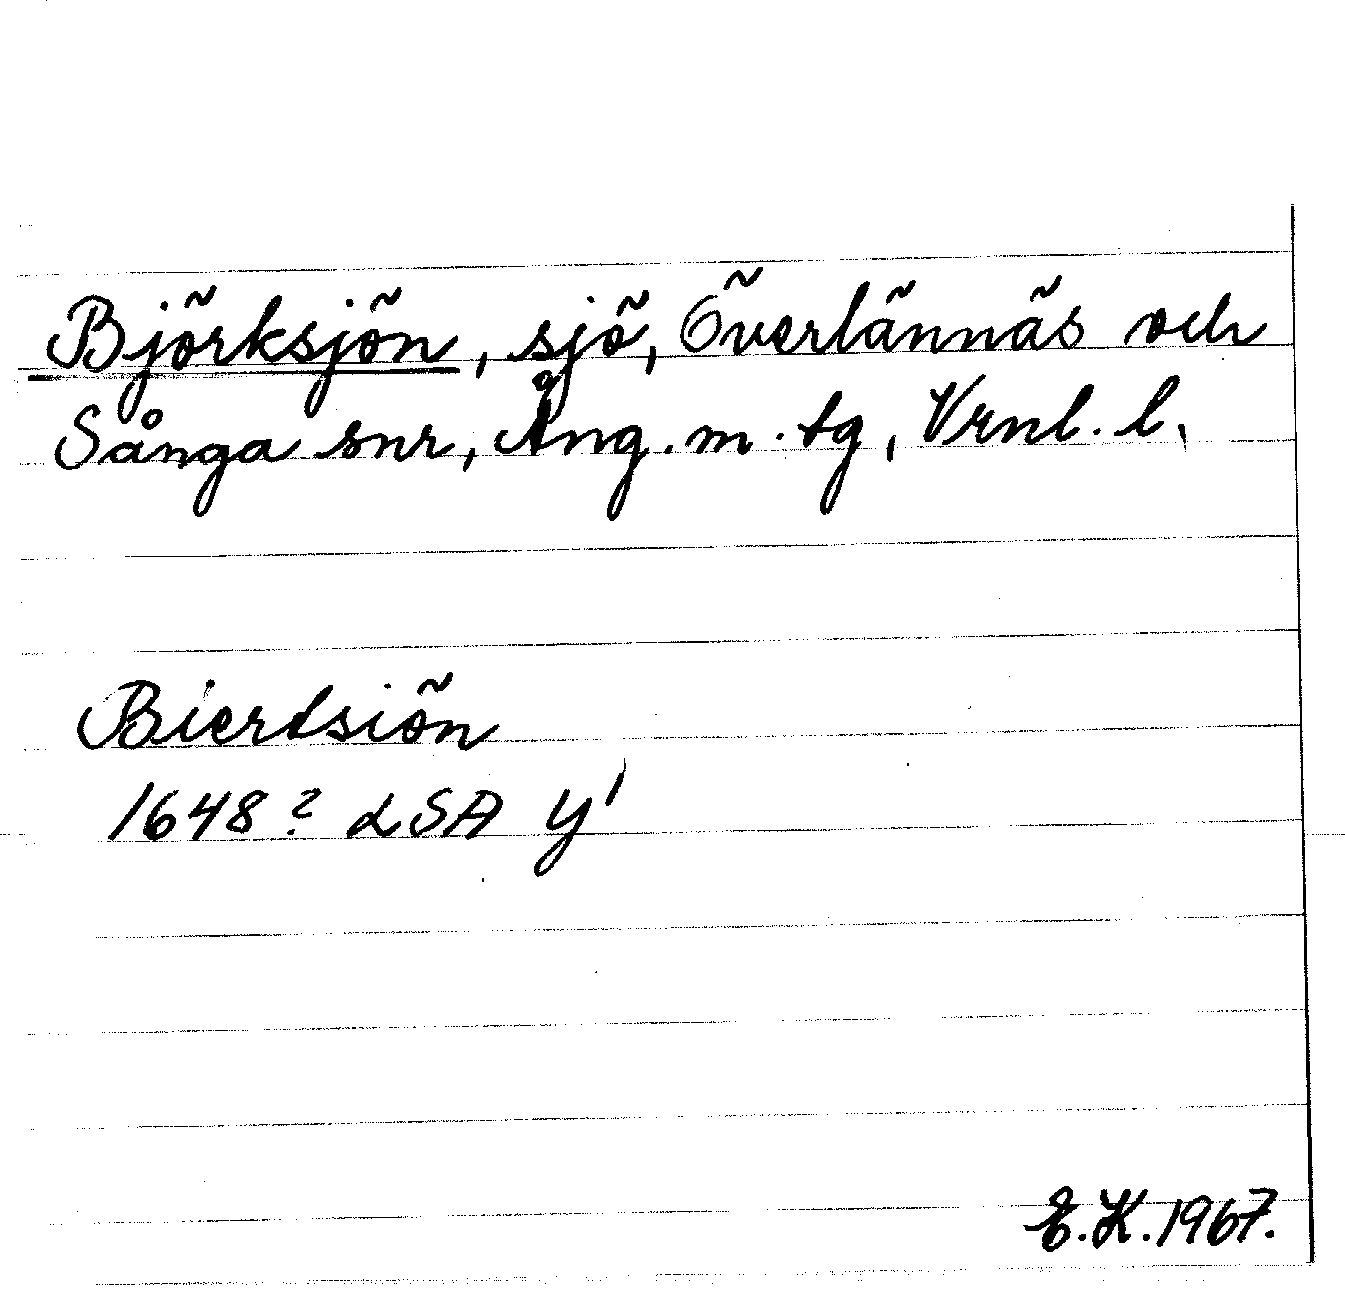 Björksjön, sjö, Överlännäs och
Sånga snr, Ång. m. tg, Vrnl. l.
Biertsiön
1648? LSA Y¹
E.K. 1967.